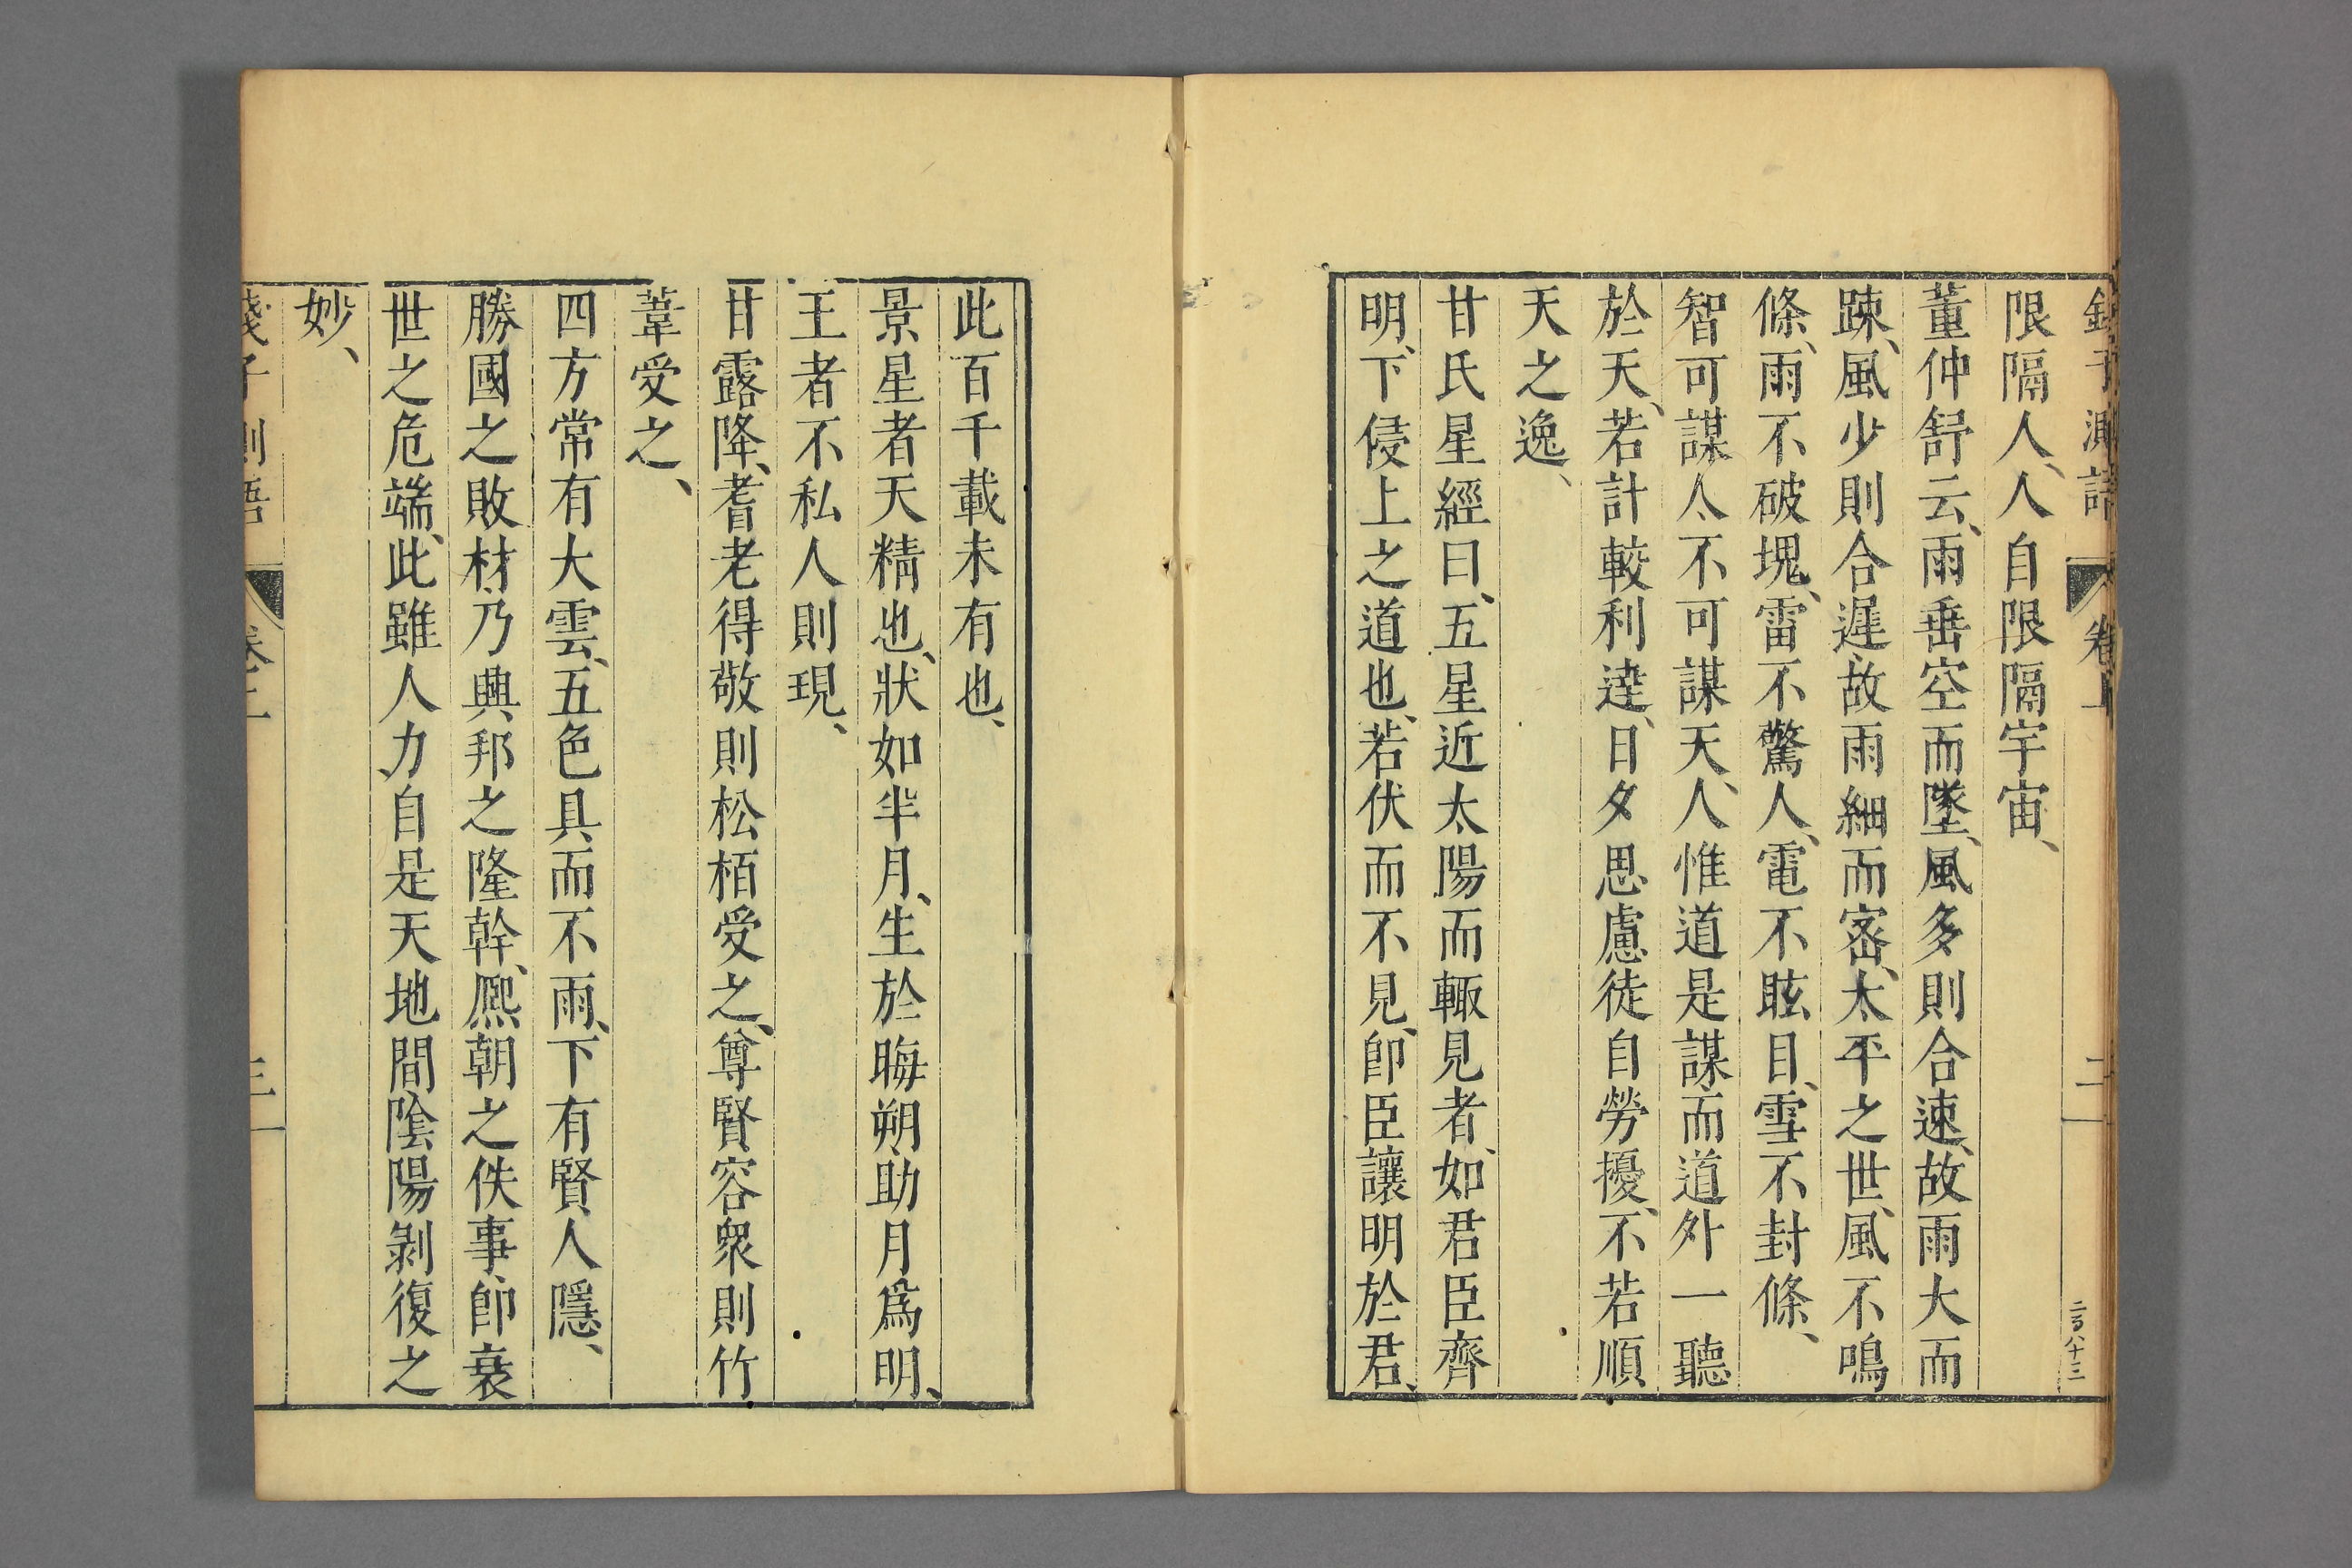 錢子測語 卷上 二
二百八十三
限隔人、人自限隔宇宙、
董仲舒云、雨垂空而墜、風多則合速、故雨大而
踈、風少則合遲、故雨細而密、太平之世、風不鳴
條、雨不破塊、雷不驚人、電不眩目、雪不封條、
智可謀人、不可謀天、人惟道是謀、而道外一聽
於天、若計較利達、日夕思慮、徒自勞擾、不若順
天之逸、
甘氏星經曰、五星近太陽而輙見者、如君臣齊
明、下侵上之道也、若伏而不見、卽臣讓明於君、
此百千載未有也、
景星者天精也、狀如半月、生於晦朔、助月爲明、
王者不私人則現、
甘露降、耆老得敬則松栢受之、尊賢容衆則竹
葦受之、
四方常有大雲、五色具、而不雨、下有賢人隱、
勝國之敗材、乃興邦之隆幹、熈朝之佚事、卽衰
世之危端、此雖人力、自是天地間隂陽剝復之
妙、
錢子測語 卷上 三